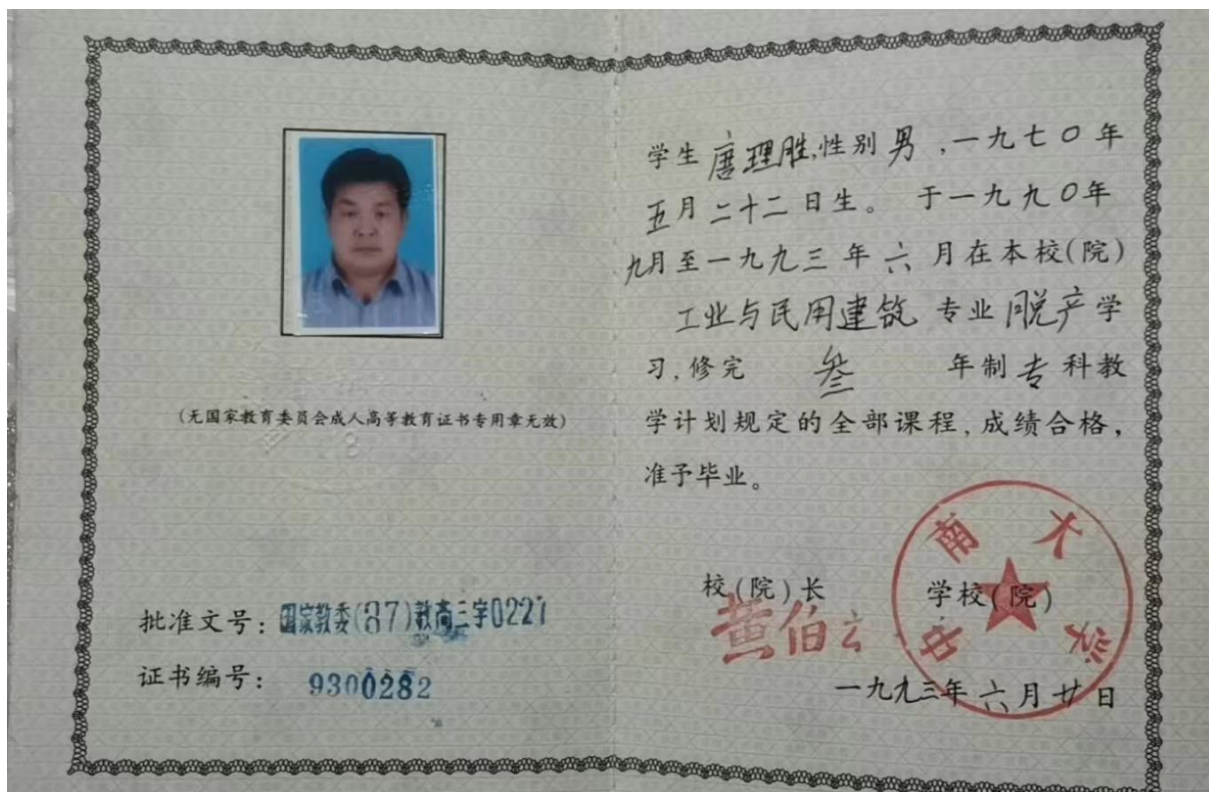 (无国家教育委员会成人高等教育证书专用章无效)
批准文号：国家教委(87)教高三字0227
证书编号：9300282
学生 唐理胜,性别 男 ,一九七〇年
五月二十二日生。 于一九九〇年
九月至一九九三年 六 月在本校(院)
工业与民用建筑 专业 脱产学
习,修完 叁 年制专科教
学计划规定的全部课程,成绩合格,
准予毕业。
校(院)长 学校(院)
黄伯云
中南大学
一九九三年六月廿日